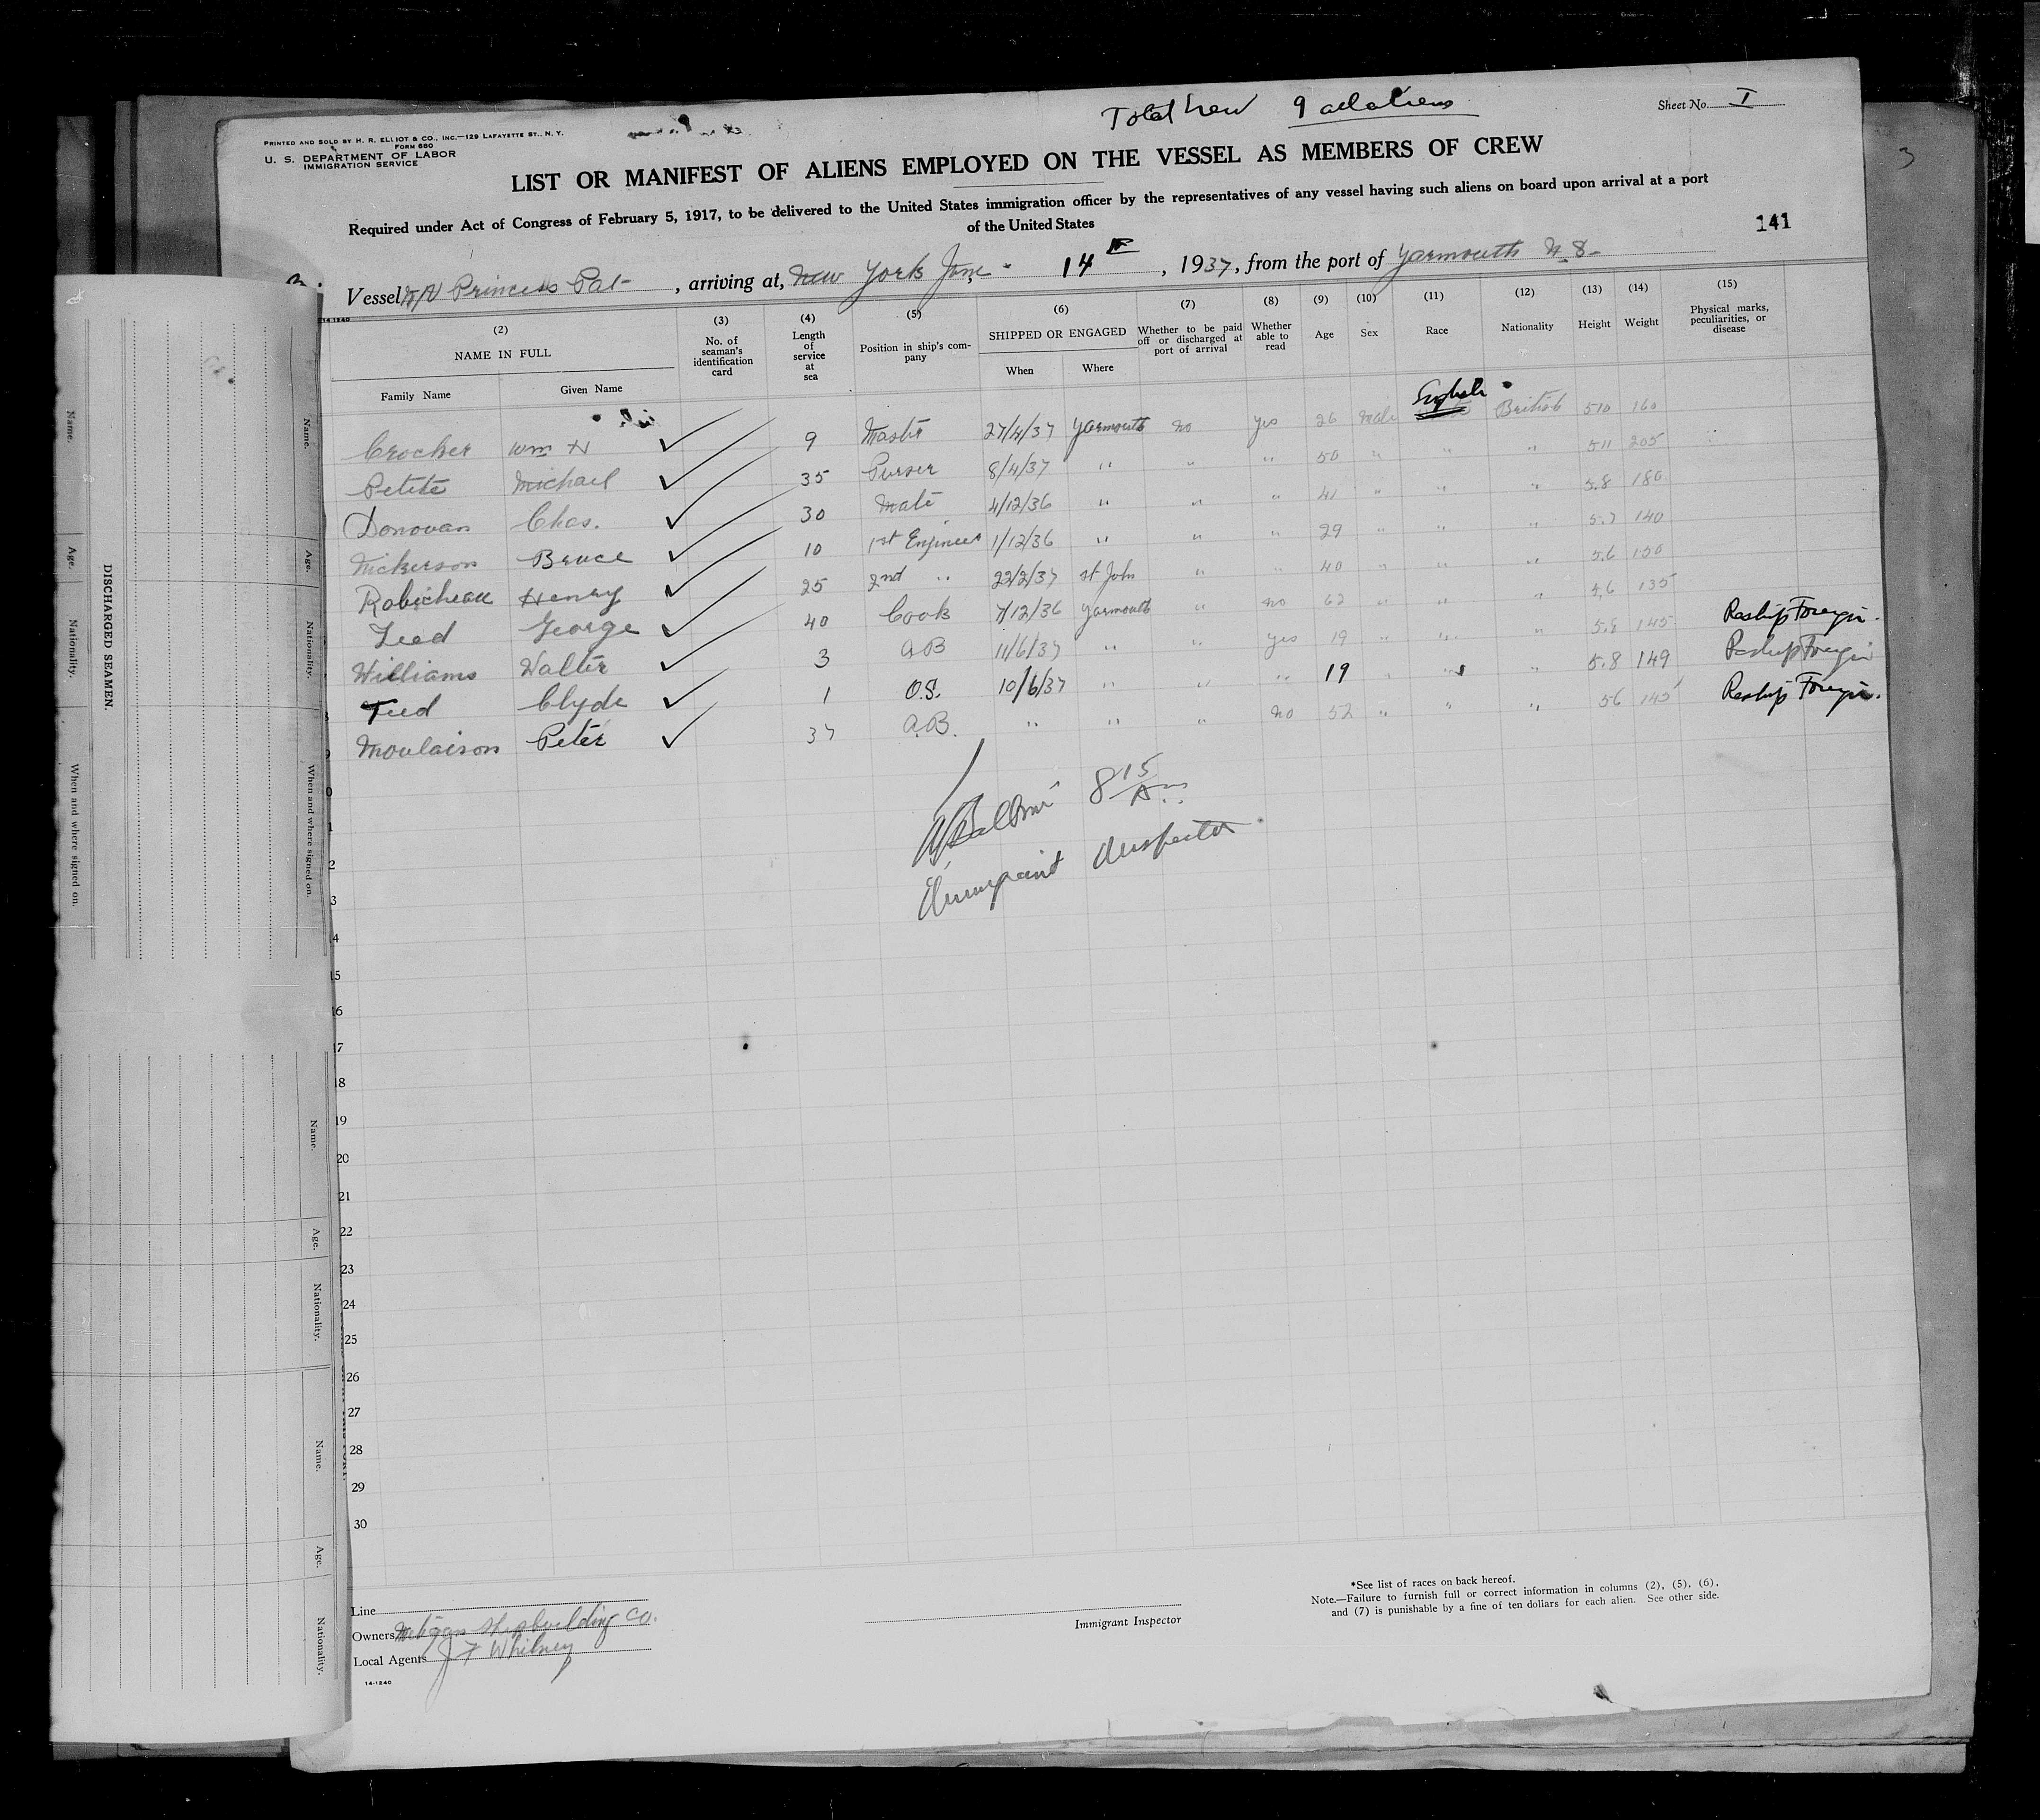 Total crew 9 all aliens
Sheet No. I
PRINTED AND SOLD BY H. R. ELLIOT & CO., INC.—129 LAFAYETTE ST., N. Y.
FORM 680
U. S. DEPARTMENT OF LABOR
IMMIGRATION SERVICE
3
LIST OR MANIFEST OF ALIENS EMPLOYED ON THE VESSEL AS MEMBERS OF CREW
Required under Act of Congress of February 5, 1917, to be delivered to the United States immigration officer by the representatives of any vessel having such aliens on board upon arrival at a port
of the United States
141
Vessel Princess Pat, arriving at, New York June 14, 1937, from the port of Yarmouth N.S.
14-1240
(2) (3) (4) (5) (6) (7) (8) (9) (10) (11) (12) (13) (14) (15)
NAME IN FULL No. of seaman's identification card Length of service at sea Position in ship's company SHIPPED OR ENGAGED Whether to be paid off or discharged at port of arrival Whether able to read Age Sex Race Nationality Height Weight Physical marks, peculiarities, or disease
Family Name Given Name When Where
Crocker Wm H ✓ 9 Master 27/4/37 Yarmouth no yes 26 Male English British 510 160
Petite Michael ✓ 35 Purser 8/4/37 " " " 50 " " " 511 205
Donovan Chas. ✓ 30 Mate 4/12/36 " " " 41 " " " 5.8 180
Nickerson Bruce ✓ 10 1st Engineer 1/12/36 " " " 29 " " " 5.7 140
Robicheau Henry ✓ 25 2nd " 22/2/37 St John " " 40 " " " 5.6 150
Teed George ✓ 40 Cook 7/12/36 Yarmouth " no 62 " " " 5.6 135
Williams Walter ✓ 3 A B 11/6/37 " " yes 19 " " " 5.8 145 Reship Foreign.
Teed Clyde ✓ 1 O.S. 10/6/37 " " " 19 " " " 5.8 149 Reship Foreign
Moulaison Peter ✓ 37 A.B. " " " no 52 " " " 56 145 Reship Foreign.
8 15 Am
Immigrant Inspector
14
15
16
17
18
19
20
21
22
23
24
25
26
27
28
29
30
Line
Owners Meteghan Shipbuilding Co.
Local Agents J F Whitney
14-1240
Immigrant Inspector
*See list of races on back hereof.
Note.—Failure to furnish full or correct information in columns (2), (5), (6),
and (7) is punishable by a fine of ten dollars for each alien. See other side.
DISCHARGED SEAMEN.
Name.
Age.
Nationality.
When and where signed on.
Name.
Age.
Nationality.
When and where signed on.
Name.
Age.
Nationality.
Name.
Age.
Nationality.